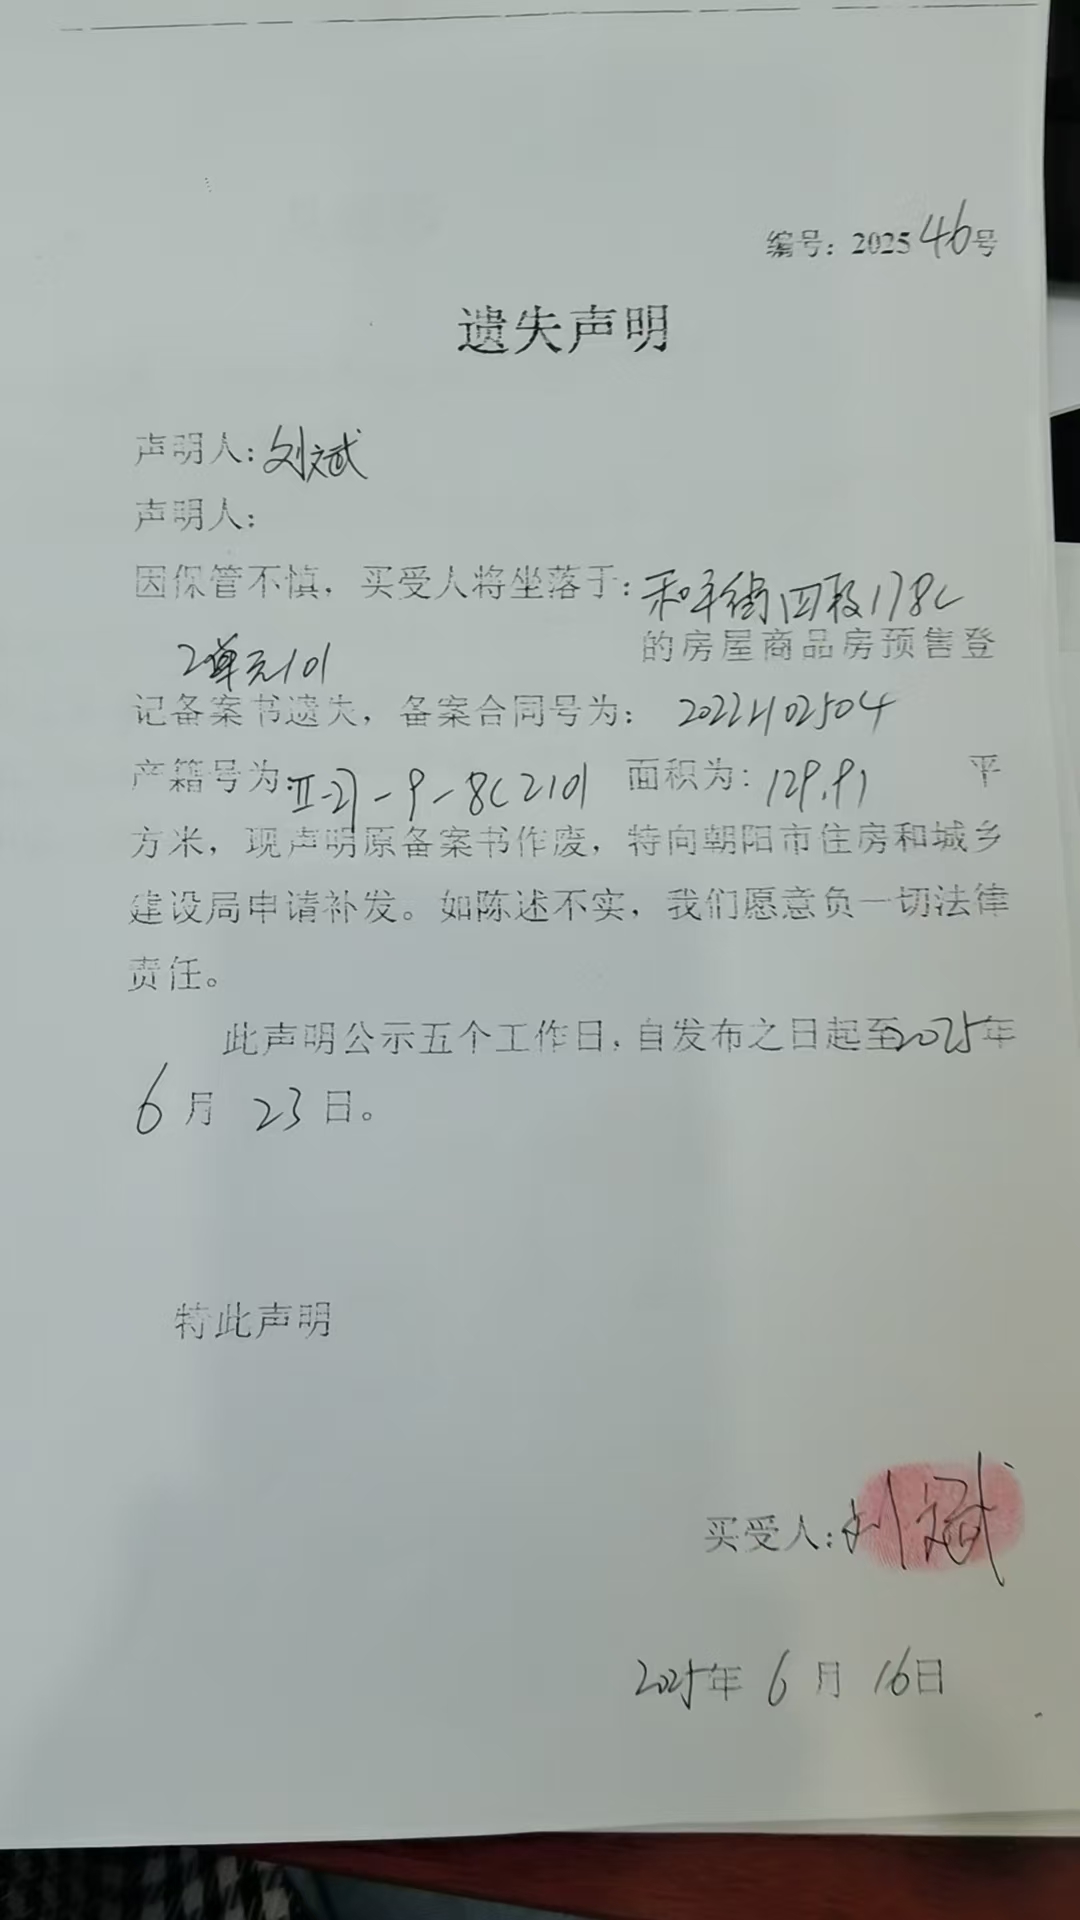 编号：202546号
遗失声明
声明人：刘斌
声明人：
因保管不慎，买受人将坐落于：和平街四段178C
2单元101 的房屋商品房预售登
记备案书遗失，备案合同号为：
产籍号为：II-21-9-8C2101 面积为：129.91 平
方米，现声明原备案书作废，特向朝阳市住房和城乡
建设局申请补发。如陈述不实，我们愿意负一切法律
责任。
此声明公示五个工作日，自发布之日起至2025年
6月23日。
特此声明
买受人：刘斌
2025年6月16日